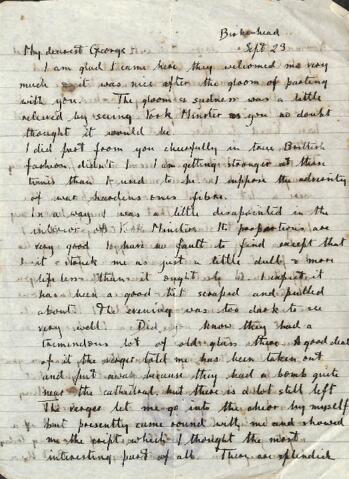 Birkenhead
Sept 23
My dearest George
I am glad I came here they welcomed me very
much & it was nice after the gloom of parting
with you. The gloom & sadness was a little
relieved by seeing York Minster as you no doubt
thought it would be.
I did part from you cheerfully in true British
fashion, didn't I. I am getting stronger at these
times than I used to be. I suppose the adversity
of war hardens ones fibre.
In a way I was a little disapointed in the
interior of York Minster. Its proportions are
very good I have no fault to find except that
it struck me as just a little dull & more
lifeless than it ought to be. I expect it
has been a good bit scraped and pulled
about. The evening was too dark to see
very well. Did you know they had a
tremendous lot of old glass there. A good deal
of it the verger told me has been taken out
and put away because they had a bomb quite
near the cathedral, but there is a lot still left
The verger let me go into the choir by myself
but presently came round with me and showed
me the crypt which I thought the most
interesting part of all. They are splendid